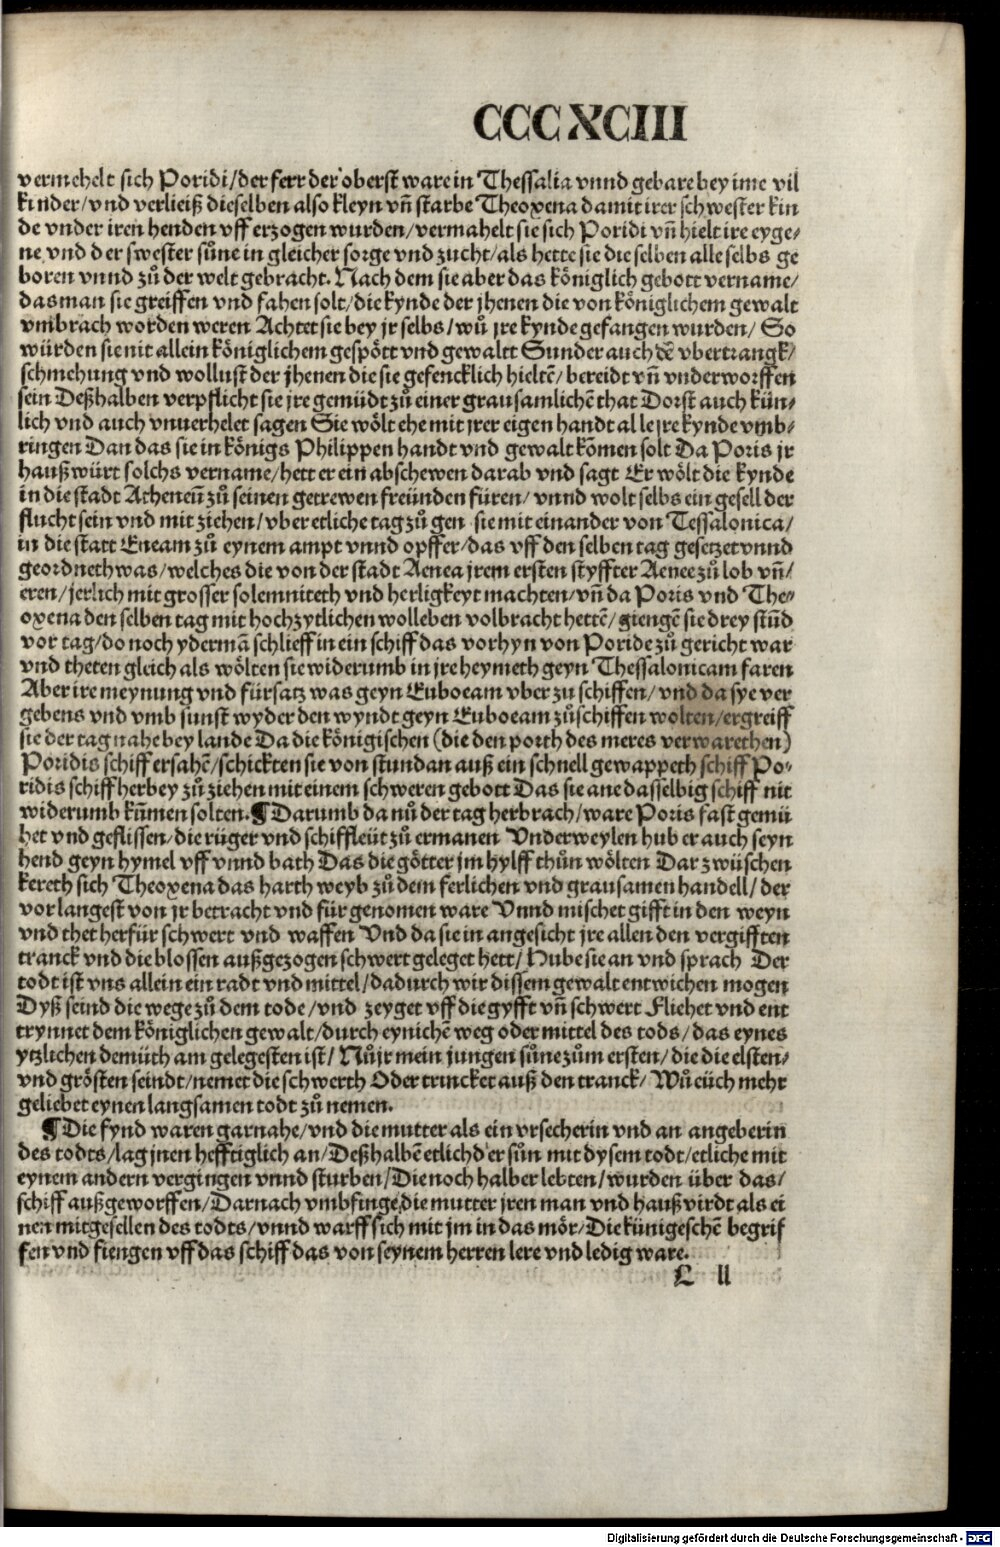 CCCXCIII
vermehelt sich Poridi/der ferr der oberst ware in Thessalia vnnd gebare bey ime vil
kinder/vnd verlieiß dieselben also kleyn vn̄ starbe Theoxena damit irer schwester kin
de vnder iren henden vff erzogen wurden/vermahelt sie sich Poridi vn̄ hielt ire eyge⸗
ne vnd der swester sůne in gleicher sorge vnd zucht/als hette sie die selben alle selbs ge
boren vnnd zů der welt gebracht. Nach dem sie aber das königlich gebott vername/
das man sie greiffen vnd fahen solt/die kynde der jhenen die von königlichem gewalt
vmbrach worden weren Achtet sie bey jr selbs/wů jre kynde gefangen wurden/ So
würden sie nit allein königlichem gespött vnd gewaltt Sunder auch dē vbertrangk/
schmehung vnd wollust der jhenen die sie gefencklich hieltē/bereidt vn̄ vnderworffen
sein Deßhalben verpflicht sie jre gemüdt zů einer grausamlichē that Dorst auch kün⸗
lich vnd auch vnuerhelet sagen Sie wölt ehe mit jrer eigen handt alle jre kynde vmb⸗
ringen Dan das sie in königs Philippen handt vnd gewalt kōmen solt Da Poris jr
hauß würt solchs vername/hett er ein abschewen darab vnd sagt Er wölt die kynde
in die stadt Atheneū zů seinen getrewen freünden füren/vnnd wolt selbs ein gesell der
flucht sein vnd mit ziehen/vber etliche tag zů gen sie mit einander von Tessalonica/
in die statt Eneam zů eynem ampt vnnd opffer/das vff den selben tag gesetzet vnnd
geordneth was/welches die von der stadt Aenea jrem ersten styffter Aenee zů lob vn̄/
eren/jerlich mit grosser solemniteth vnd herligkeyt machten/vn̄ da Poris vnd The⸗
oxena den selben tag mit hochzytlichen wolleben volbracht hettē/giengē sie drey stūd
vor tag/do noch ydermā schlieff in ein schiff das vorhyn von Poride zů gericht war
vnd theten gleich als wölten sie widerumb in jre heymeth geyn Thessalonicam faren
Aber ire meynung vnd fürsatz was geyn Euboeam vber zu schiffen/vnd da sye ver
gebens vnd vmb sunst wyder den wyndt geyn Euboeam zůschiffen wolten/ergreiff
sie der tag nahe bey lande Da die königischen (die den porth des meres verwarethen)
Poridis schiff ersahē/schickten sie von stundan auß ein schnell gewappeth schiff Po⸗
ridis schiff herbey zů ziehen mit einem schweren gebott Das sie ane dasselbig schiff nit
widerumb kūmen solten. ¶ Darumb da nů der tag herbrach/ware Poris fast gemü
het vnd geflissen/die rüger vnd schiffleüt zů ermanen Vnderweylen hub er auch seyn
hend geyn hymel vff vnnd bath Das die götter jm hylff thůn wölten Dar zwüschen
kereth sich Theoxena das harth weyb zů dem ferlichen vnd grausamen handell/der
vor langest von jr betracht vnd für genomen ware Vnnd mischet gifft in den weyn
vnd thet herfür schwert vnd waffen Vnd da sie in angesicht jre allen den vergifften
tranck vnd die blossen außgezogen schwert geleget hett/ Hube sie an vnd sprach Der
todt ist vns allein ein radt vnd mittel/dadurch wir dissem gewalt entwichen mogen
Dyß seind die wege zů dem tode/vnd zeyget vff die gyfft vn̄ schwert Fliehet vnd ent
trynnet dem königlichen gewalt/durch eynichē weg oder mittel des tods/das eynes
ytzlichen demüth am gelegesten ist/ Nů jr mein jungen sůne zům ersten/die die elsten⸗
vnd grösten seindt/nemet die schwerth Oder trincket auß den tranck/Wů eüch mehr
geliebet eynen langsamen todt zů nemen.
¶ Die fynd waren gar nahe/vnd die mutter als ein vrsecherin vnd an angeberin
des todts/lag jnen hefftiglich an/Deßhalbē etlich d'er sůn mit dysem todt/etliche mit
eynem andern vergingen vnnd sturben/Die noch halber lebten/wurden über das/
schiff außgeworffen/Darnach vmbfinge die mutter jren man vnd hauß virdt als ei
nen mitgesellen des todts/vnnd warff sich mit jm in das mör/Die künigeschē begrif
fen vnd fiengen vff das schiff das von seynem herren lere vnd ledig ware.
L ll
Digitalisierung gefördert durch die Deutsche Forschungsgemeinschaft - DFG